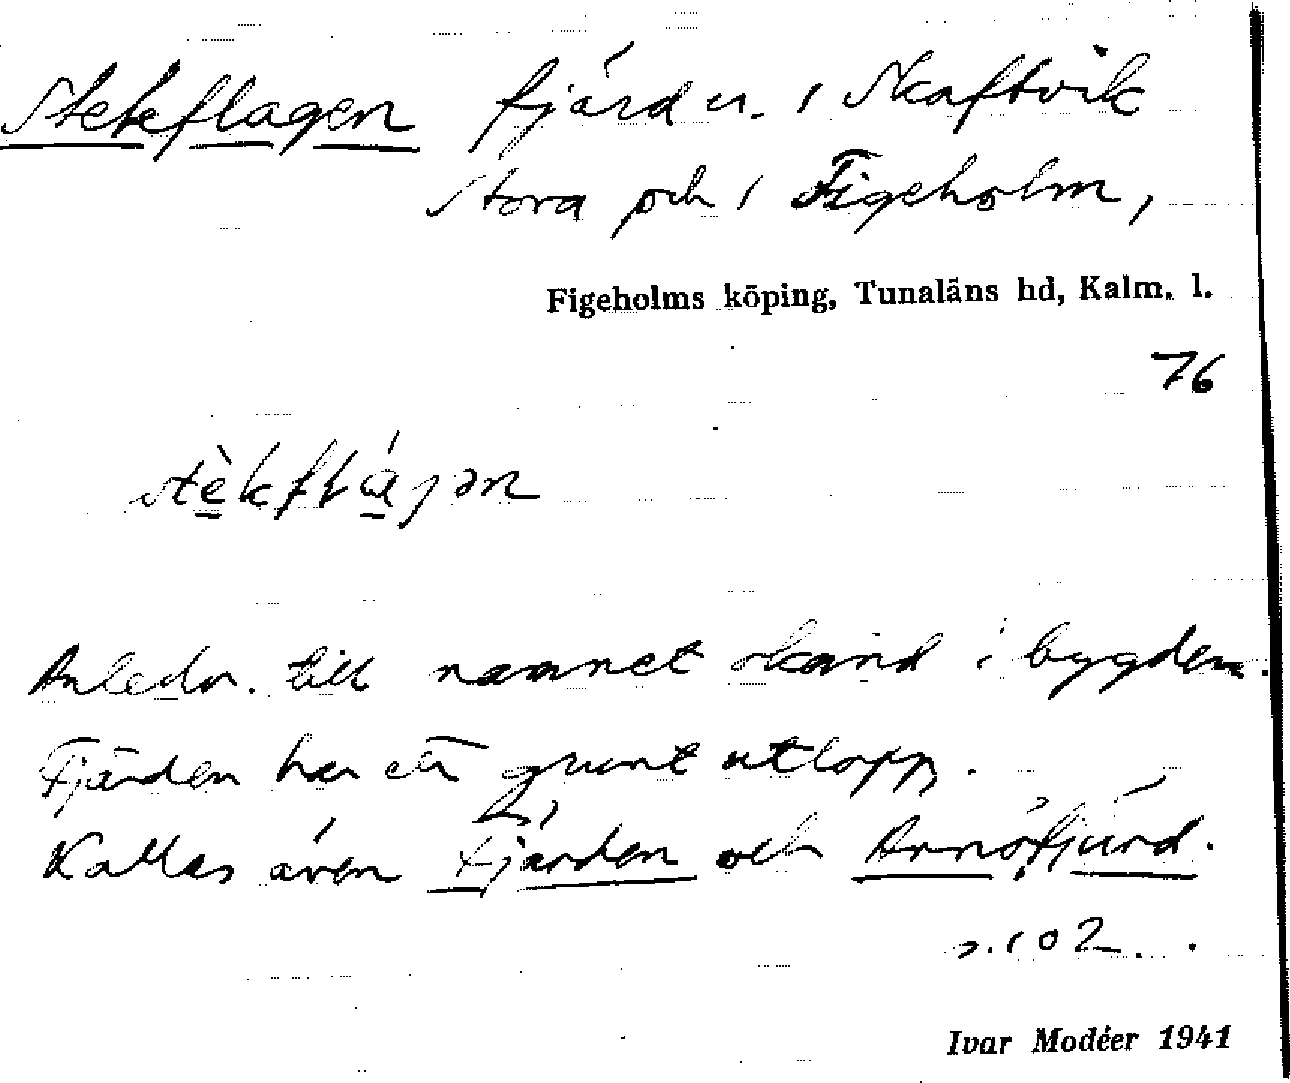 Stekflagen fjärd m. i Skaftvik
Stora och i Figeholm,
Figeholms köping, Tunaläns hd, Kalm. l.
76
stèkflágən
Anledn. till namnet okänd i bygden.
Fjärden har ett grunt utlopp.
Kallas även Fjärden och Arnöfjärd.
s. 102.
Ivar Modéer 1941